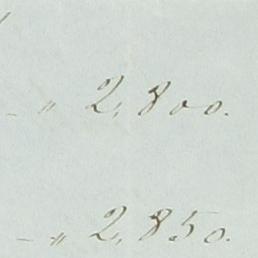 - " 2,800.
- " 2,850.